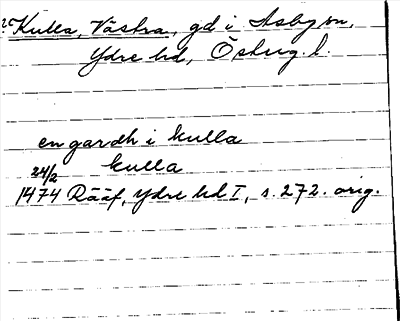 ? Kulla, Västra, gd i Asby sn,
Ydre hd, Östug. l.
en gardh i kulla
kulla
24/2
1474 Rääf, Ydre hd I, s. 272. orig.